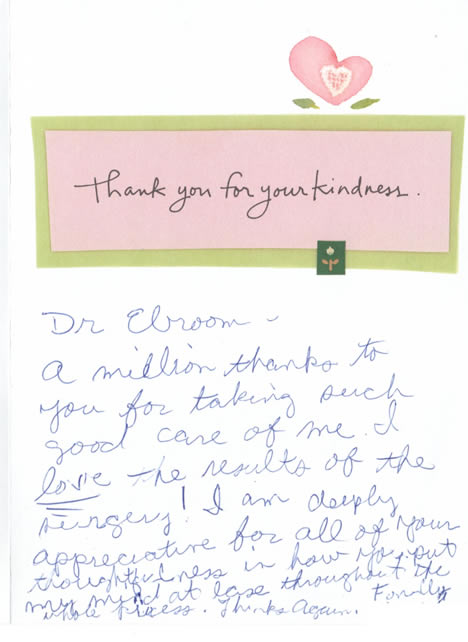 Thank you for your kindness.
Dr Ebroom -
A million thanks to
you for taking such
good care of me. I
love the results of the
surgery! I am deeply
appreciative for all of your
thoughtfulness in how you put
my mind at ease throughout the
whole process. Thanks Again.